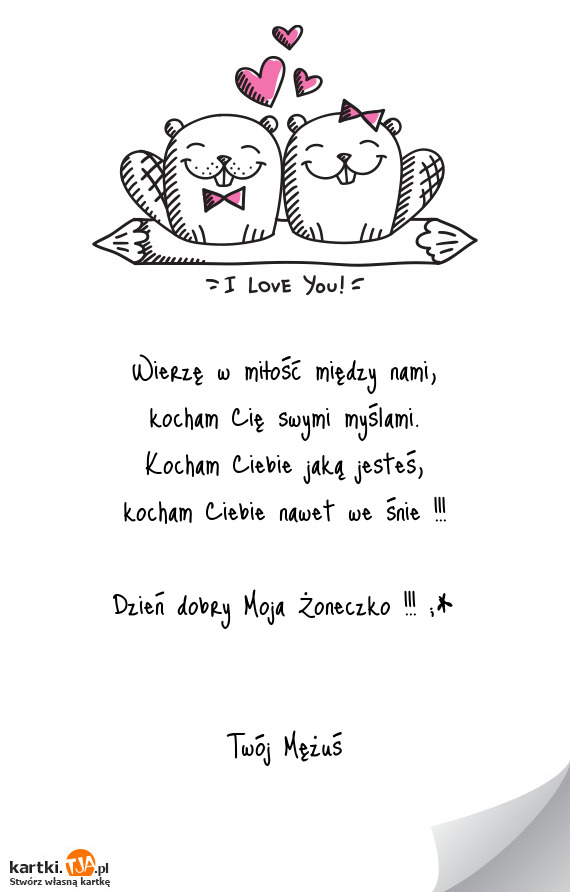 I LOVE YOU!
Wierzę w miłość między nami,
kocham Cię swymi myślami.
Kocham Ciebie jaką jesteś,
kocham Ciebie nawet we śnie !!!
Dzień dobry Moja Żoneczko !!! ;*
Twój Mężuś
kartki.TJA.pl
Stwórz własną kartkę